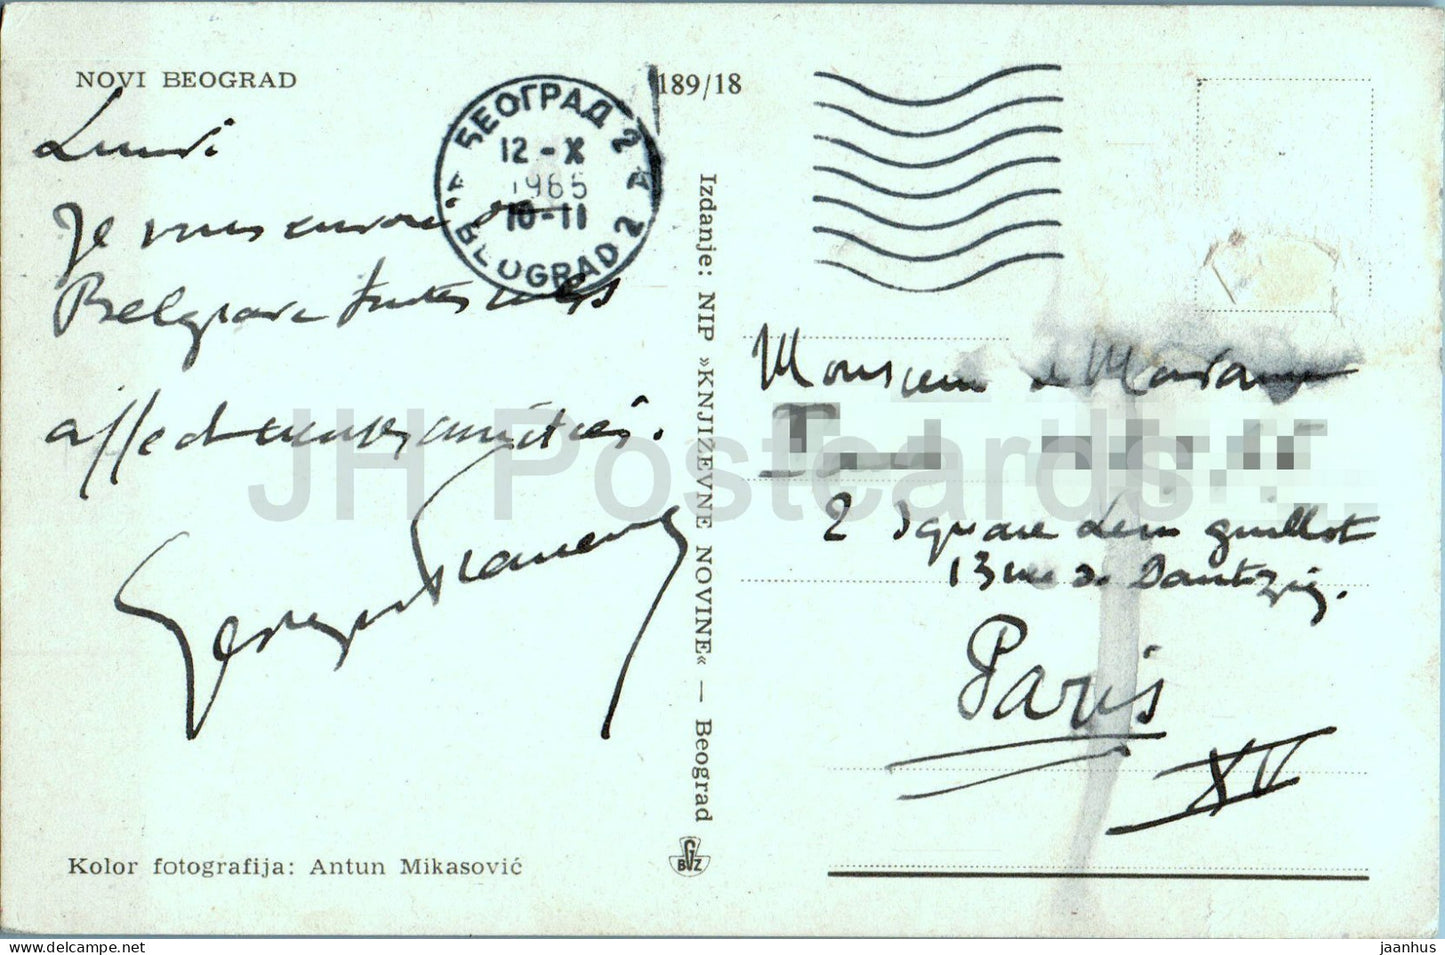 NOVI BEOGRAD
189/18
БЕОГРАД 2
12-X
1965
10-11
BEOGRAD 2
Lundi
Je vous envoie de
Belgrade toutes mes
affectueuses amitiés.
Georges
Izdanje: NIP »KNJIŽEVNE NOVINE« — Beograd
BGZ
Kolor fotografija: Antun Mikasović
Monsieur et Madame
2 Square Léon Guillot
13 rue de Dantzig.
Paris
XV
JH Postcards
jaanhus